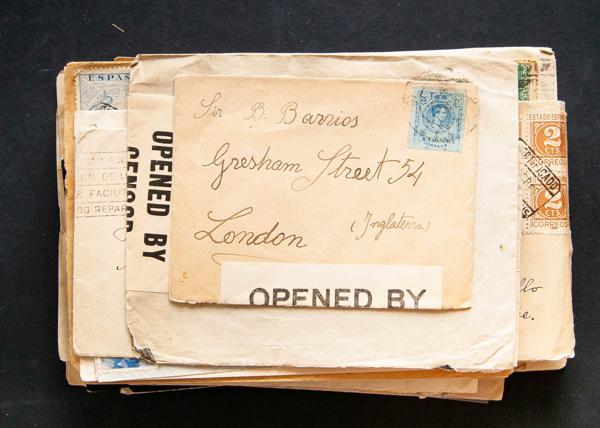 ESPAÑ
Sir B. Barrios
Gresham Street 54
London (Inglaterra)
OPENED BY
OPENED BY
CENSOR
FACILIT
DO REPAR
ESTADO ESPA
2
CTS
CORREOS
2
CTS
CORREOS